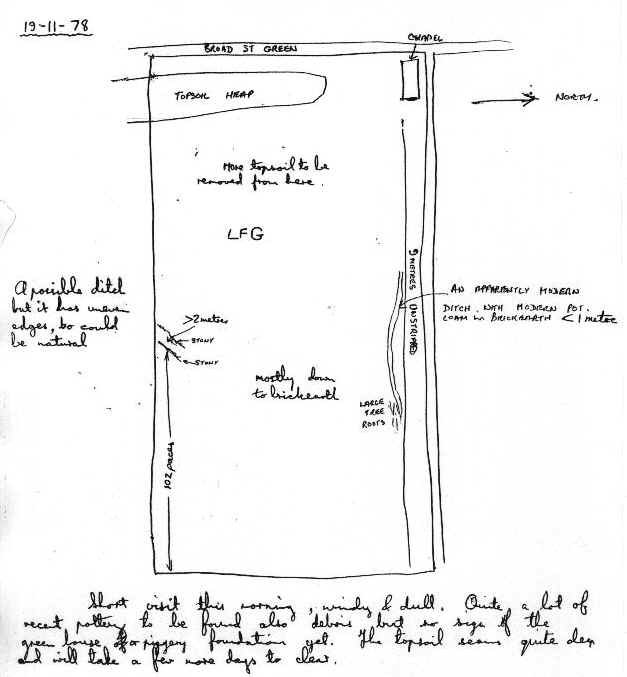 19-11-78
BROAD ST GREEN
CHAPEL
TOPSOIL HEAP
NORTH.
More topsoil to be
removed from here.
LFG
9 METRES UNSTRIPPED
A possible ditch
but it has uneven
edges, so could
be natural
>2 metres
STONY
STONY
AN APPARENTLY MODERN
DITCH. WITH MODERN POT.
LOAM in BRICKEARTH <1 metre
mostly down
to brickearth
LARGE
TREE
ROOTS
102 paces
Short visit this morning, windy & dull. Quite a lot of
recent pottery to be found also debris but no sign of the
green house or piggery foundation yet. The topsoil seems quite deep
and will take a few more days to clear.